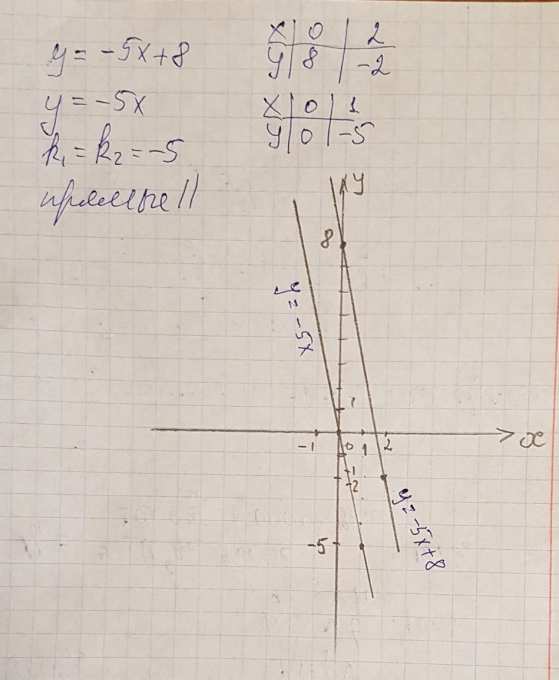 y = -5x+8
x | 0 | 2
y | 8 | -2
y = -5x
x | 0 | 1
y | 0 | -5
k₁ = k₂ = -5
прямые ||
y
8
y = -5x
1
-1 0 1 2
x
-1
-2
-5
y = -5x+8